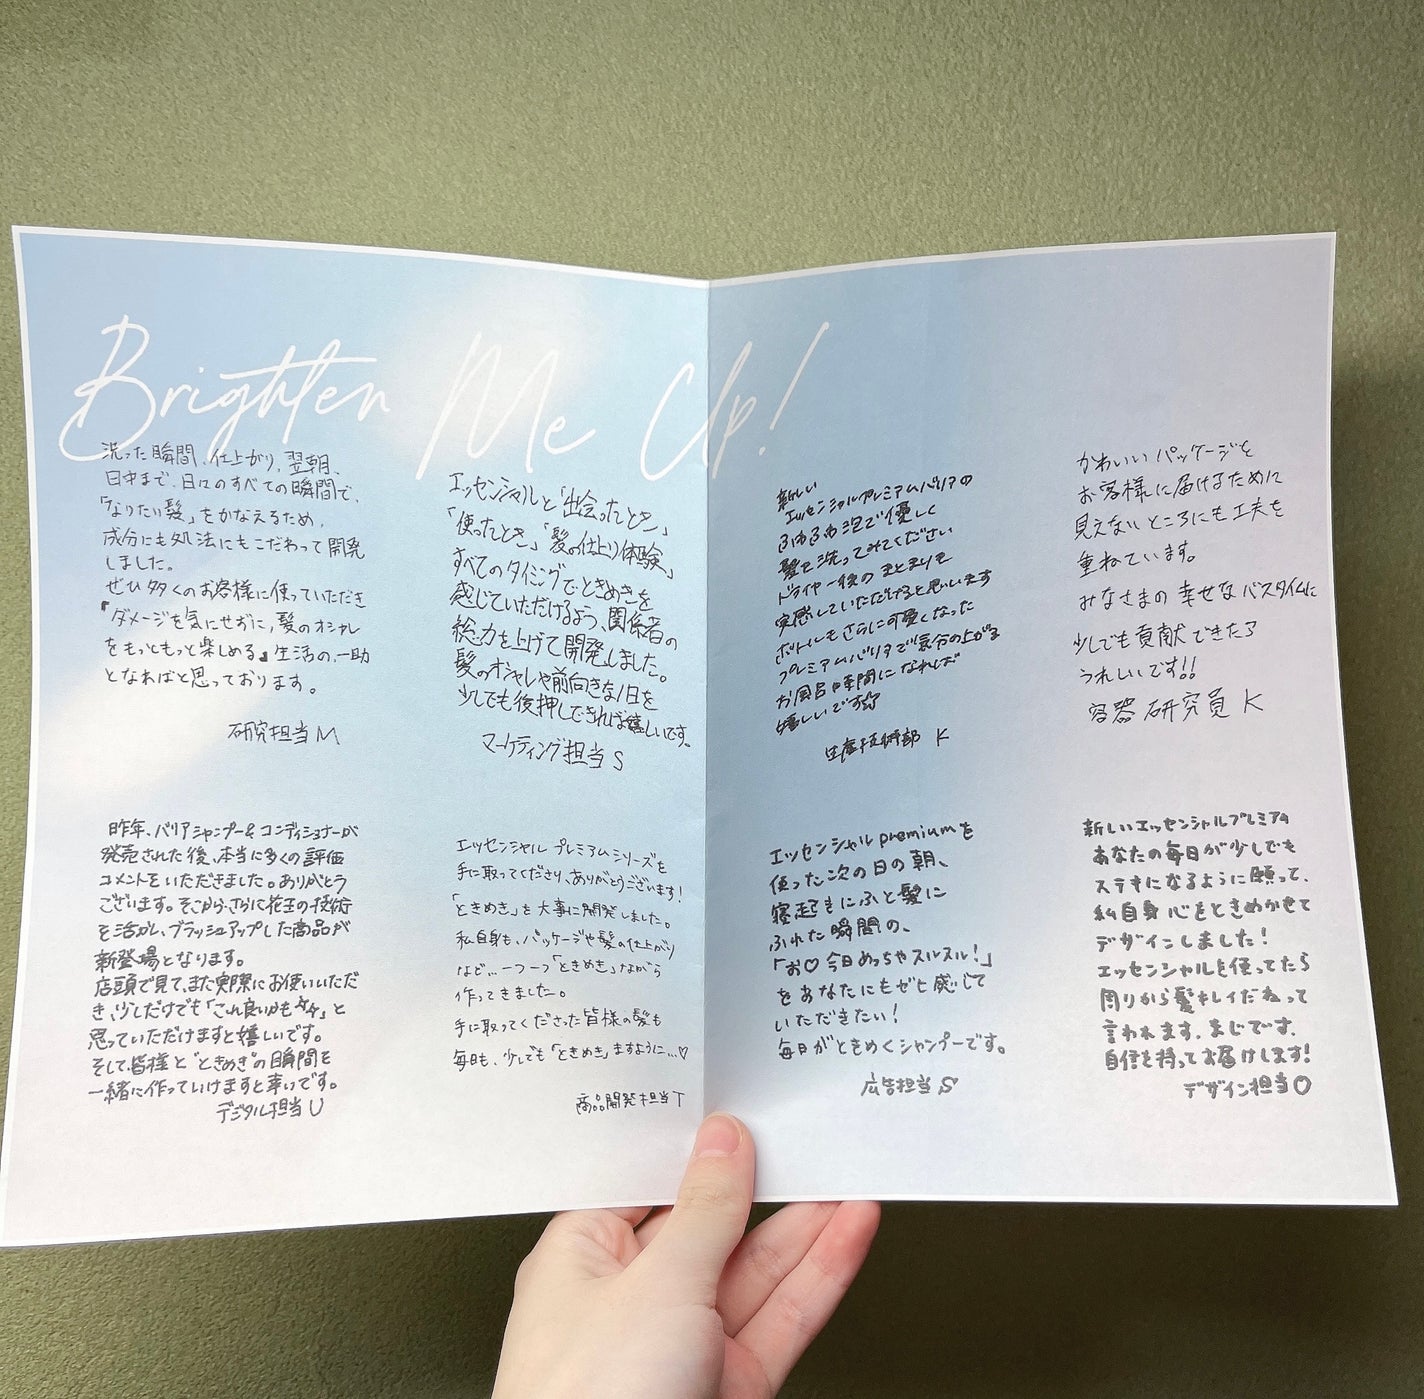 Brighten Me Up!
洗った瞬間、仕上がり、翌朝、
日中まで、日々のすべての瞬間で、
「なりたい髪」をかなえるため、
成分にも処法にもこだわって開発
しました。
ぜひ多くのお客様に使っていただき
『ダメージを気にせずに、髪のオシャレ
をもっともっと楽しめる』生活の、一助
となればと思っております。
研究担当 M
エッセンシャルと「出会ったとき」
「使ったとき」「髪の仕上り体験」
すべてのタイミングでときめきを
感じていただけるよう、関係者の
総力を上げて開発しました。
髪のオシャレや前向きな1日を
少しでも後押しできれば嬉しいです。
マーケティング担当 S
新しい
エッセンシャルプレミアムバリアの
ふわふわ泡で優しく
髪を洗ってみてください
ドライヤー後のまとまりを
実感していただけると思います
ボトルもさらに可愛くなった
プレミアムバリアで気分の上がる
お風呂時間になれば
嬉しいです☆
生産技術部 K
かわいいパッケージを
お客様に届けるために
見えないところにも工夫を
重ねています。
みなさまの幸せなバスタイムに
少しでも貢献できたら
うれしいです!!
容器研究員 K
昨年、バリアシャンプー&コンディショナーが
発売された後、本当に多くの評価
コメントをいただきました。ありがとう
ございます。そこから、さらに花王の技術
を活かし、ブラッシュアップした商品が
新登場となります。
店頭で見て、また実際にお使いいただ
き、少しだけでも「これ良いかも」と
思っていただけますと嬉しいです。
そして、皆様と"ときめき"の瞬間を
一緒に作っていけますと幸いです。
デジタル担当 U
エッセンシャル プレミアムシリーズを
手に取ってくださり、ありがとうございます!
「ときめき」を大事に開発しました。
私自身も、パッケージや髪の仕上がり
など…一つ一つ「ときめき」ながら
作ってきました。
手に取ってくださった皆様の髪も
毎日も、少しでも「ときめき」ますように…♡
商品開発担当 T
エッセンシャル premiumを
使った次の日の朝、
寝起きにふと髪に
ふれた瞬間の、
「お♡今日めっちゃスルスル!」
をあなたにもゼヒ感じて
いただきたい!
毎日がときめくシャンプーです。
広告担当 S
新しいエッセンシャルプレミアム
あなたの毎日が少しでも
ステキになるように願って、
私自身心をときめかせて
デザインしました!
エッセンシャルを使ってたら
周りから髪キレイだねって
言われます、まじです。
自信を持ってお届けします!
デザイン担当 O